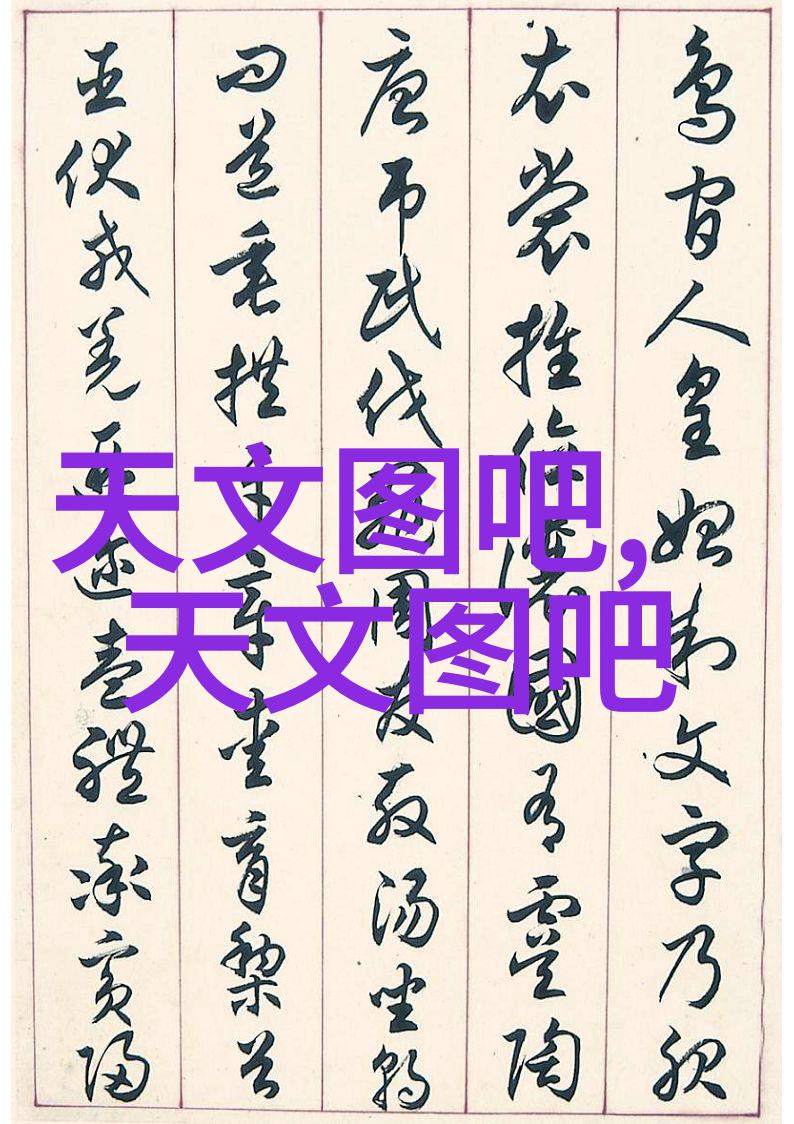 鳥官人皇始制文字乃服
衣裳推位讓國有虞陶
唐吊民伐罪周發殷湯坐朝
問道垂拱平章愛育黎首
臣伏戎羌遐邇壹體率賓歸
天文图吧,
天文图吧